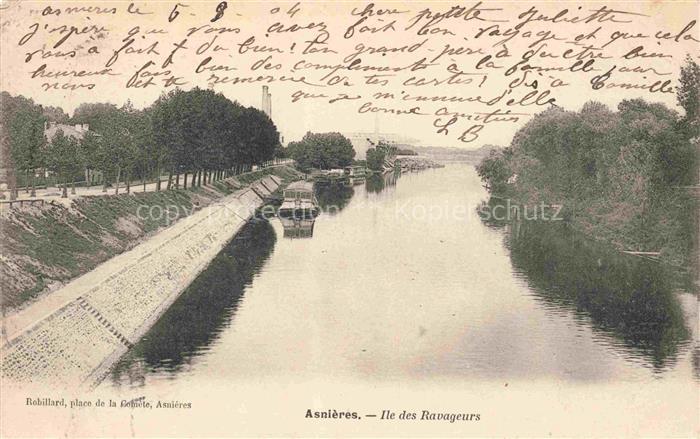 Asnières 5 - 9 - 04 chère petite Juliette
J'espère que vous avez fait bon voyage et que cela
vous a fait du bien! ton grand-père a dû être bien
heureux fais bien des compliments à la famille pour
nous et te remercie de tes cartes! dis à Camille
que je m'ennuie d'elle
bonne amitiés
LB
copy protected - Kopierschutz
Robillard, place de la Comète, Asnières
Asnières. — Ile des Ravageurs